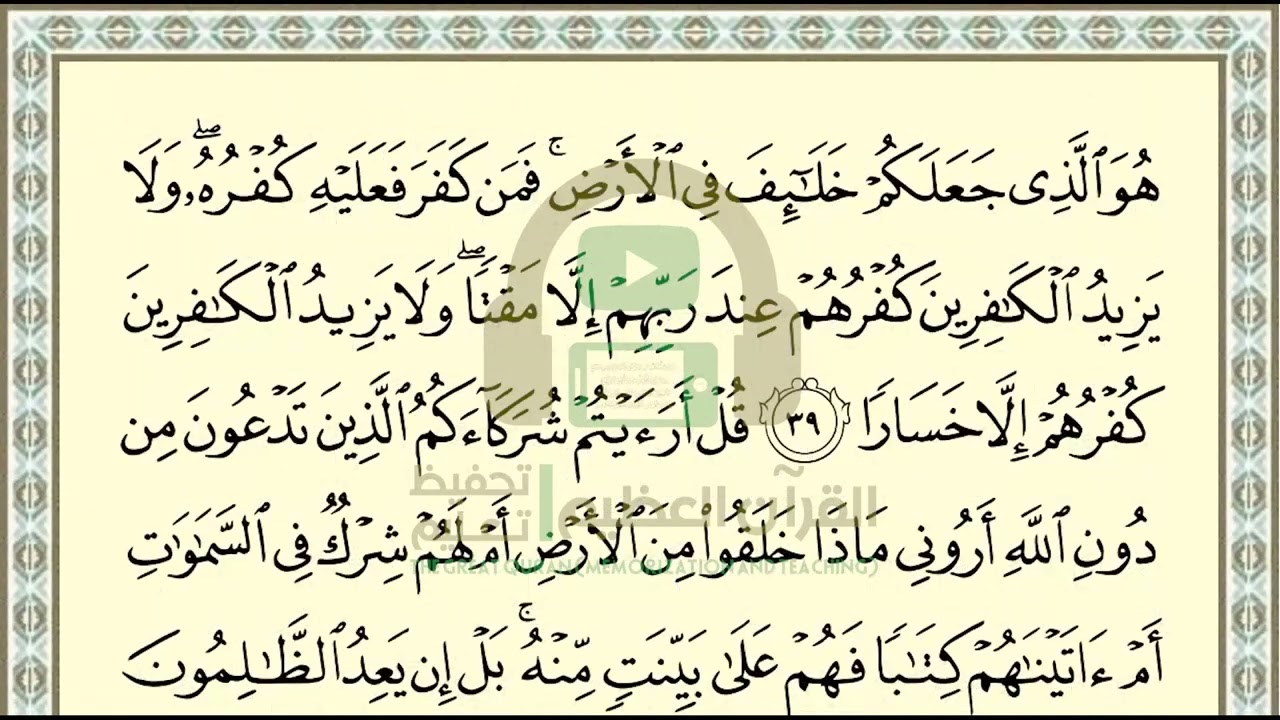 هُوَ ٱلَّذِى جَعَلَكُمْ خَلَـٰٓئِفَ فِى ٱلْأَرْضِ ۚ فَمَن كَفَرَ فَعَلَيْهِ كُفْرُهُۥ ۖ وَلَا
يَزِيدُ ٱلْكَـٰفِرِينَ كُفْرُهُمْ عِندَ رَبِّهِمْ إِلَّا مَقْتًا ۖ وَلَا يَزِيدُ ٱلْكَـٰفِرِينَ
كُفْرُهُمْ إِلَّا خَسَارًا ٣٩ قُلْ أَرَءَيْتُمْ شُرَكَآءَكُمُ ٱلَّذِينَ تَدْعُونَ مِن
تحفيظ تعليم | القرآن العظيم
دُونِ ٱللَّهِ أَرُونِى مَاذَا خَلَقُوا۟ مِنَ ٱلْأَرْضِ أَمْ لَهُمْ شِرْكٌ فِى ٱلسَّمَـٰوَٰتِ
THE GREAT QURAN (MEMORIZATION AND TEACHING)
أَمْ ءَاتَيْنَـٰهُمْ كِتَـٰبًا فَهُمْ عَلَىٰ بَيِّنَتٍ مِّنْهُ ۚ بَلْ إِن يَعِدُ ٱلظَّـٰلِمُونَ